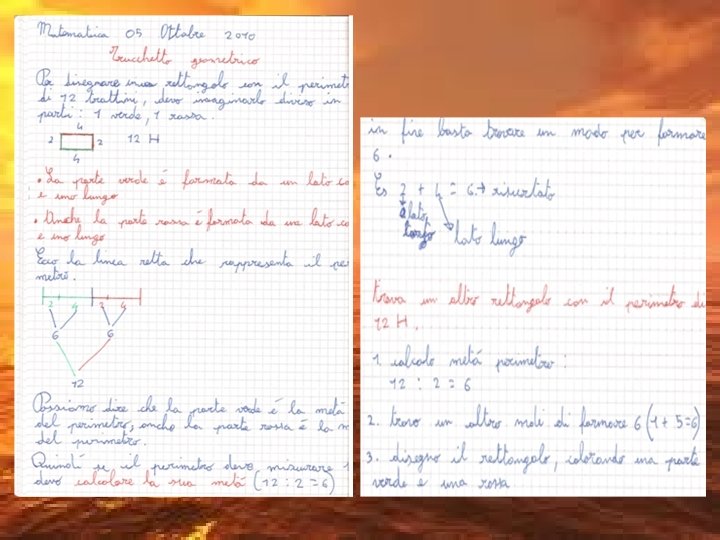 Matematica 05 Ottobre 2010
Trucchetto geometrico
Per disegnare un rettangolo con il perimetr
di 12 trattini, devo immaginarlo diviso in
parti: 1 verde, 1 rossa.
4
2 2 12 H
4
• La parte verde é formata da un lato co
e uno lungo
• Anche la parte rossa é formata da un lato co
e uno lungo
Ecco la linea retta che rappresenta il per
metro.
2 4 2 4
6 6
12
Possiamo dire che la parte verde é la metá
del perimetro, anche la parte rossa é la m
del perimetro.
Quindi se il perimetro deve misurare 1
devo calcolare la sua metá (12:2=6)
in fine basta trovare un modo per formare
6.
Es 2 + 4 = 6 → risultato
lato lato lungo
trova un altro rettangolo con il perimetro di
12 H.
1 calcolo metá perimetro:
12 : 2 = 6
2. trovo un altro modi di formare 6 (1+5=6)
3. disegno il rettangolo, colorando una parte
verde e una rossa